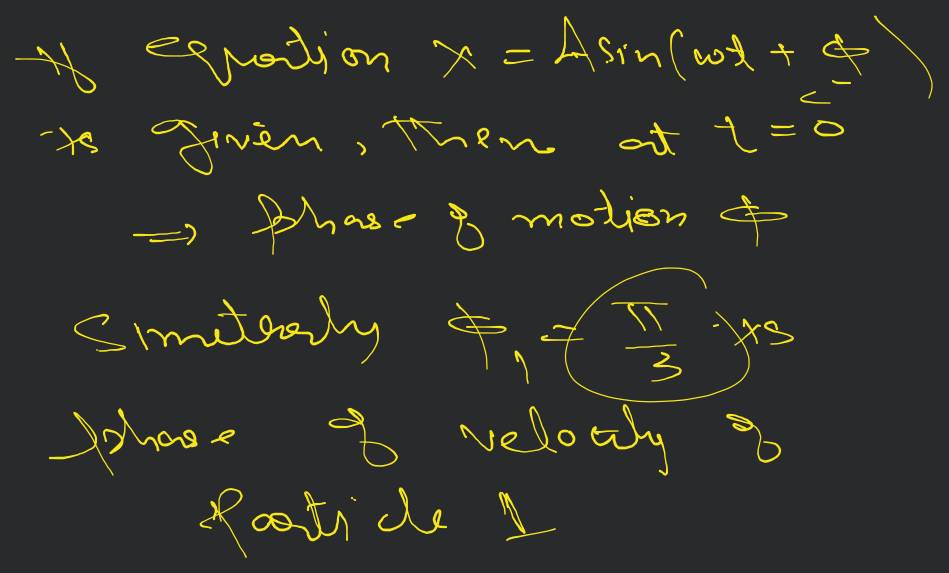 If equation x = A sin(ωt + ϕ)
is given, then at t = 0
⇒ phase of motion ϕ
Similarly ϕ₁ = π/3 is
phase of velocity of
particle 1